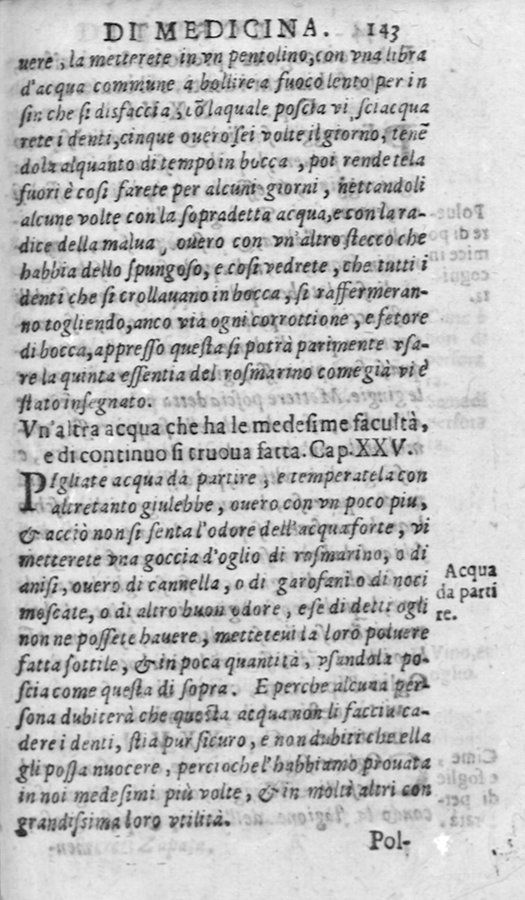 DI MEDICINA. 143
uere, la metterete in vn pentolino, con vna libra
d'acqua commune a bollire a fuoco lento per in
sin che ſi disfaccia, cõ laquale poſcia vi ſciacqua
rete i denti, cinque ouero ſei volte il giorno, tenẽ
dola alquanto di tempo in bocca, poi rendetela
fuori è coſi farete per alcuni giorni, nettandoli
alcune volte con la ſopradetta acqua, e con la ra-
dice della malua, ouero con vn'altro ſtecco che
habbia dello ſpungoſo, e coſi vedrete, che tutti i
denti che ſi crollauano in bocca, ſi raffermeran-
no togliendo, anco via ogni corrottione, e fetore
di bocca, appreſſo queſta ſi potrà parimente vſa-
re la quinta eſſentia del roſmarino come già vi è
ſtato inſegnato.
Vn'altra acqua che ha le medeſime facultà,
e di continuo ſi truoua fatta. Cap. XXV.
PIgliate acqua da partire, e temperatela con
altretanto giulebbe, ouero con vn poco piu,
& acciò non ſi ſenta l'odore dell'acqua forte, vi
metterete vna goccia d'oglio di roſmarino, o di
aniſi, ouero di cannella, o di garofani o di noci
moſcate, o di altro buon odore, e ſe di detti ogli
non ne poſſete hauere, metteteui la loro poluere
fatta ſottile, & in poca quantità, vſandola po-
ſcia come queſta di ſopra. E perche alcuna per-
ſona dubiterà che queſta acqua non li faccia ca-
dere i denti, ſtia pur ſicuro, e non dubiti che ella
gli poſſa nuocere, percioche l'habbiamo prouata
in noi medeſimi più volte, & in molti altri con
grandiſſima loro vtilità.
Acqua
da parti
re.
Pol-